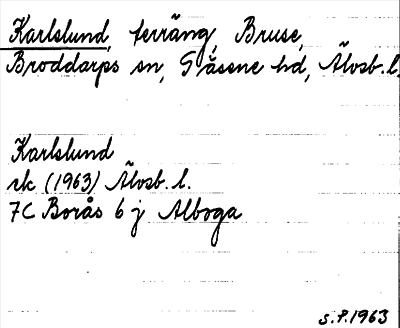 Karlslund, terräng, Bruse,
Broddarps sn, Gäsene hd, Älvsb. l.
Karlslund
rk (1963) Älvsb. l.
7C Borås 6 j Alboga
S.F. 1963